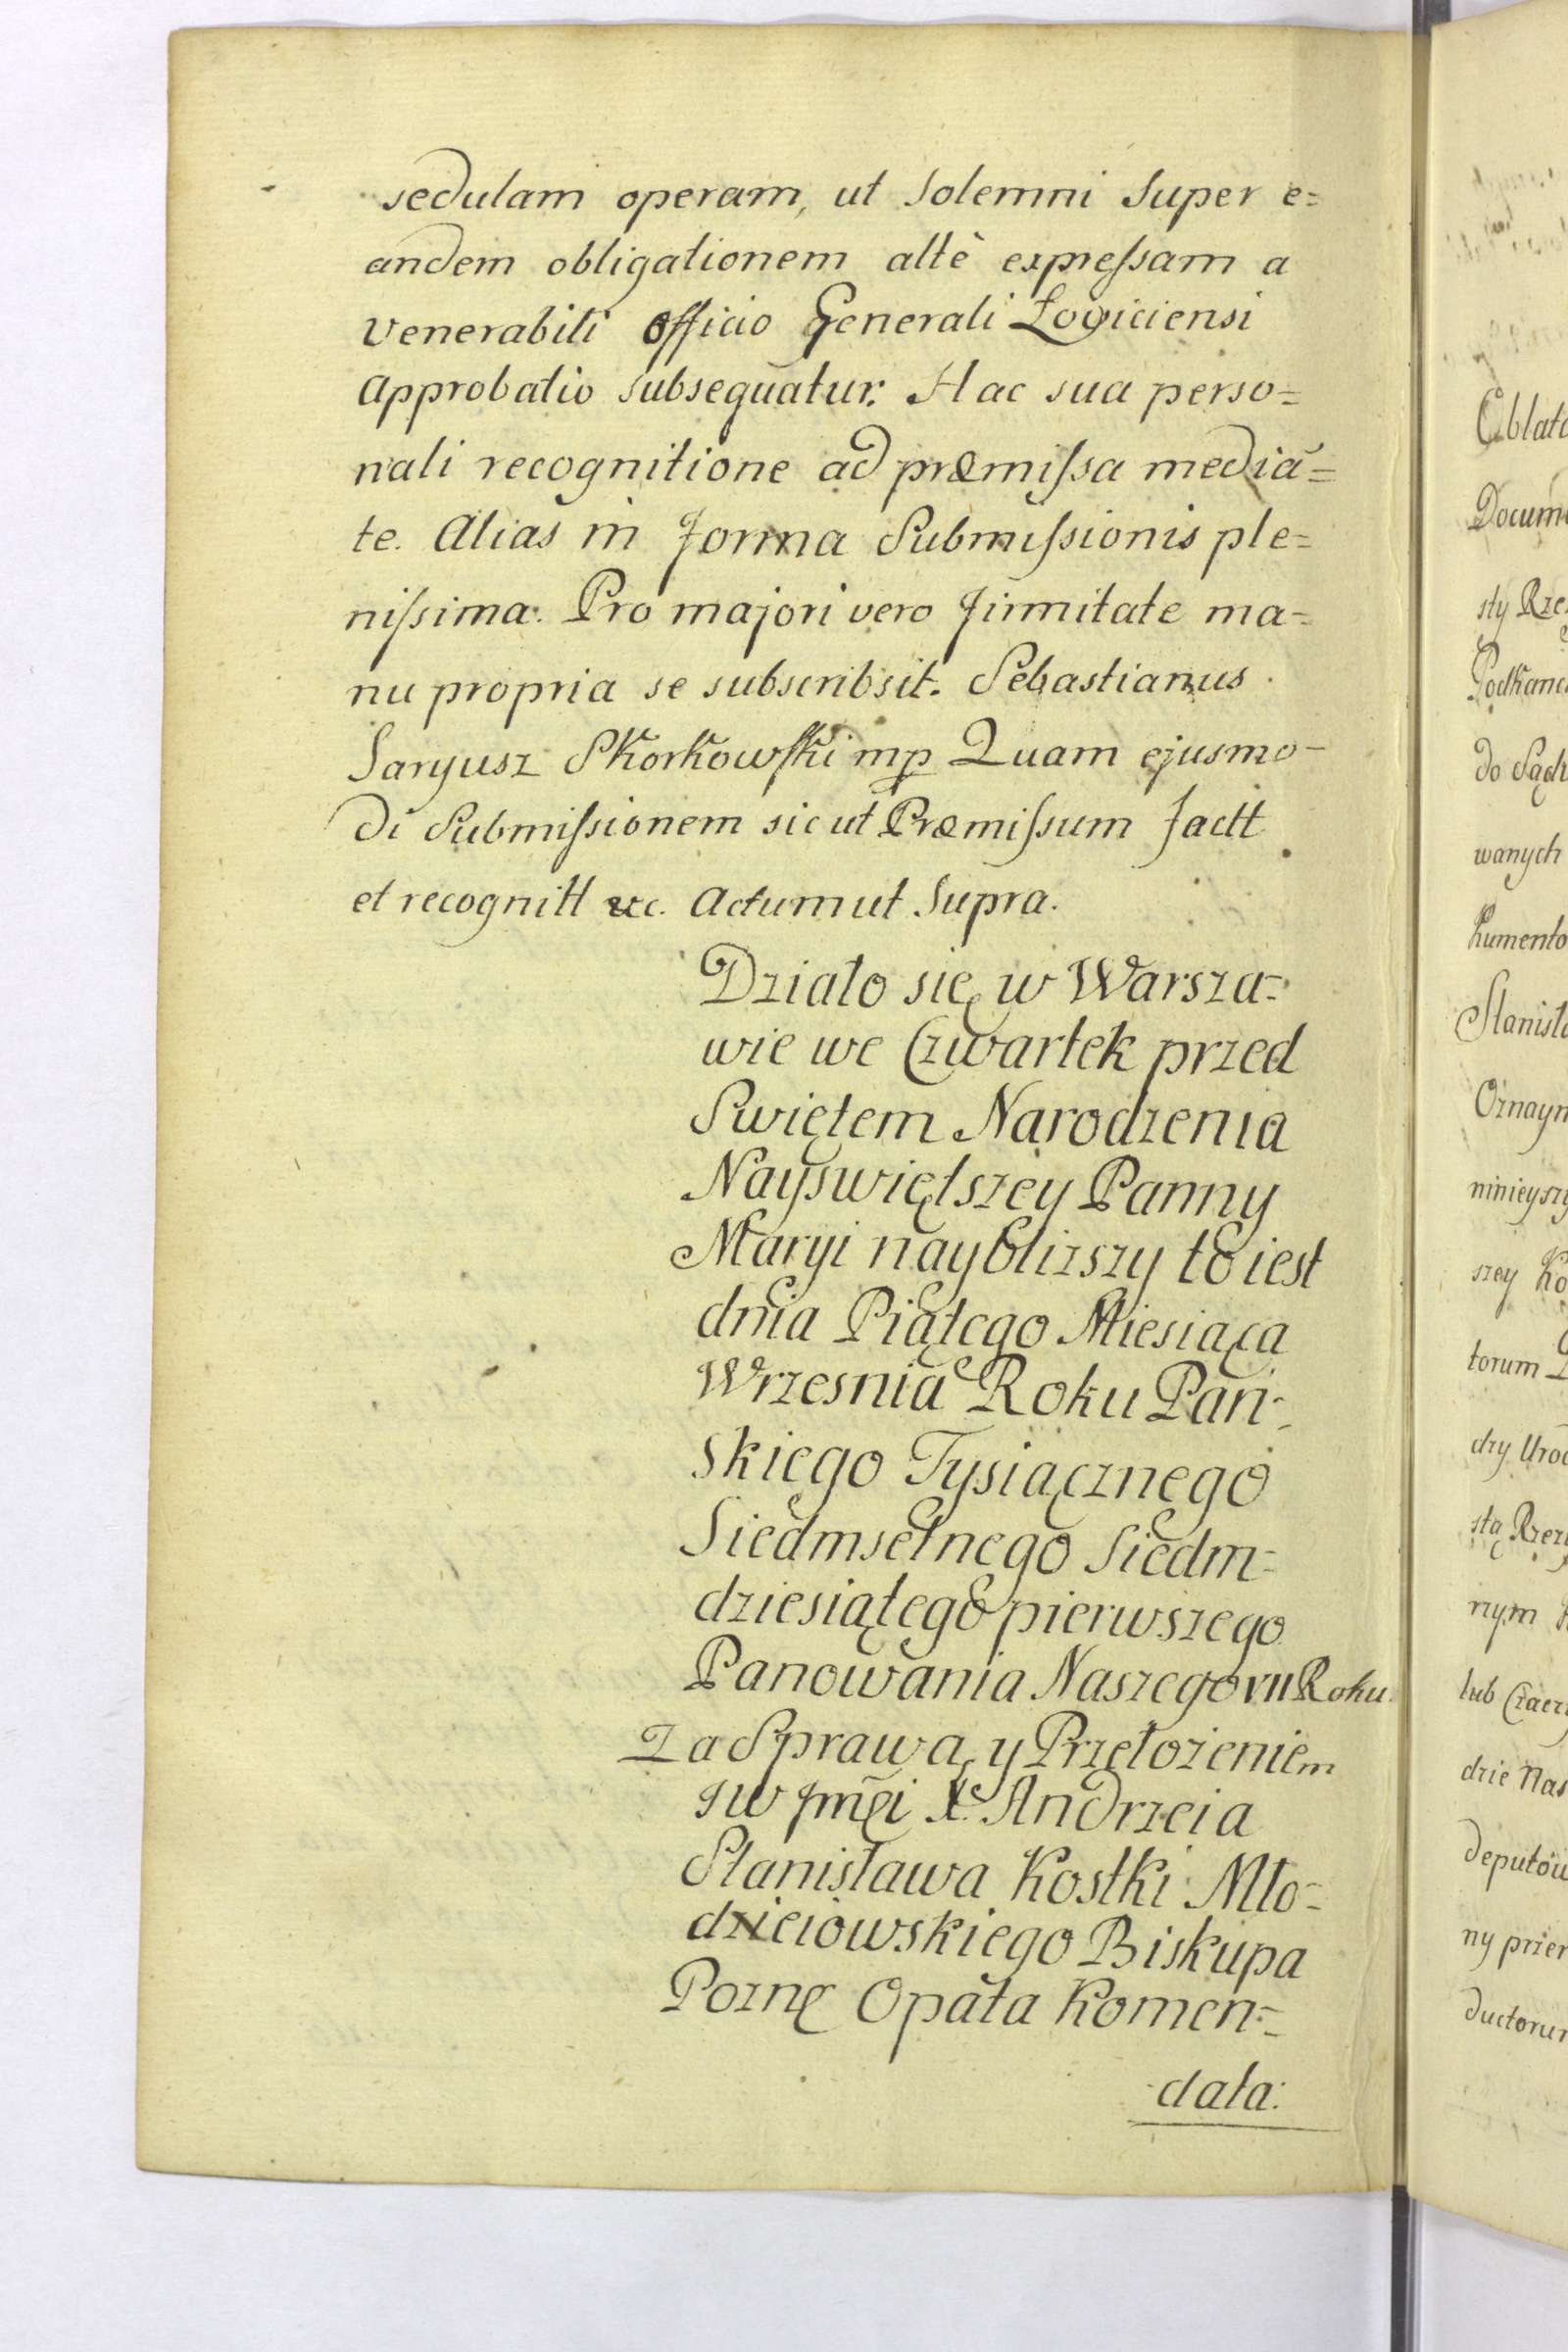 sedulam operam, ut Solemni Super e=
andem obligationem altè expreſsam a
Venerabili Officio Generali Loviciensi
Approbatio subsequatur. Hac sua perso=
nali recognitione ad præmiſsa media=
te. Alias in forma Submiſsionis ple=
niſsima. Pro majori vero firmitate ma=
nu propria se subscribsit. Sebastianus
Saryusz Skorkowſki mp Quam ejusmo-
di Submiſsionem sic ut Præmiſsum factt
et recognitt &c. Actum ut Supra.
Działo się w Warsza=
wie we Czwartek przed
Swiętem Narodzenia
Nayswiętszey Panny
Maryi naybliższy to iest
dnia Piątego Miesiąca
Wrzesnia Roku Pań=
skiego Tysiącznego
Siedmsetnego Siedm=
dziesiątego pierwszego
Panowania Naszego VII Roku.
Za Sprawą y Przełożeniem
JW Jmci X. Andrzeia
Stanisława Kostki Mło=
dzieiowskiego Biskupa
Pozng Opata Komen=
data:
Oblata
Docume
sty Rze
Podkanc
do Sąch
wanych
kumento
Stanisła
Oznaym
ninieyszy
szey Ko
torum
dzy Uro
stą Rzez
nym
lub Czacz
dzie Nas
deputów
ny przer
ductorum